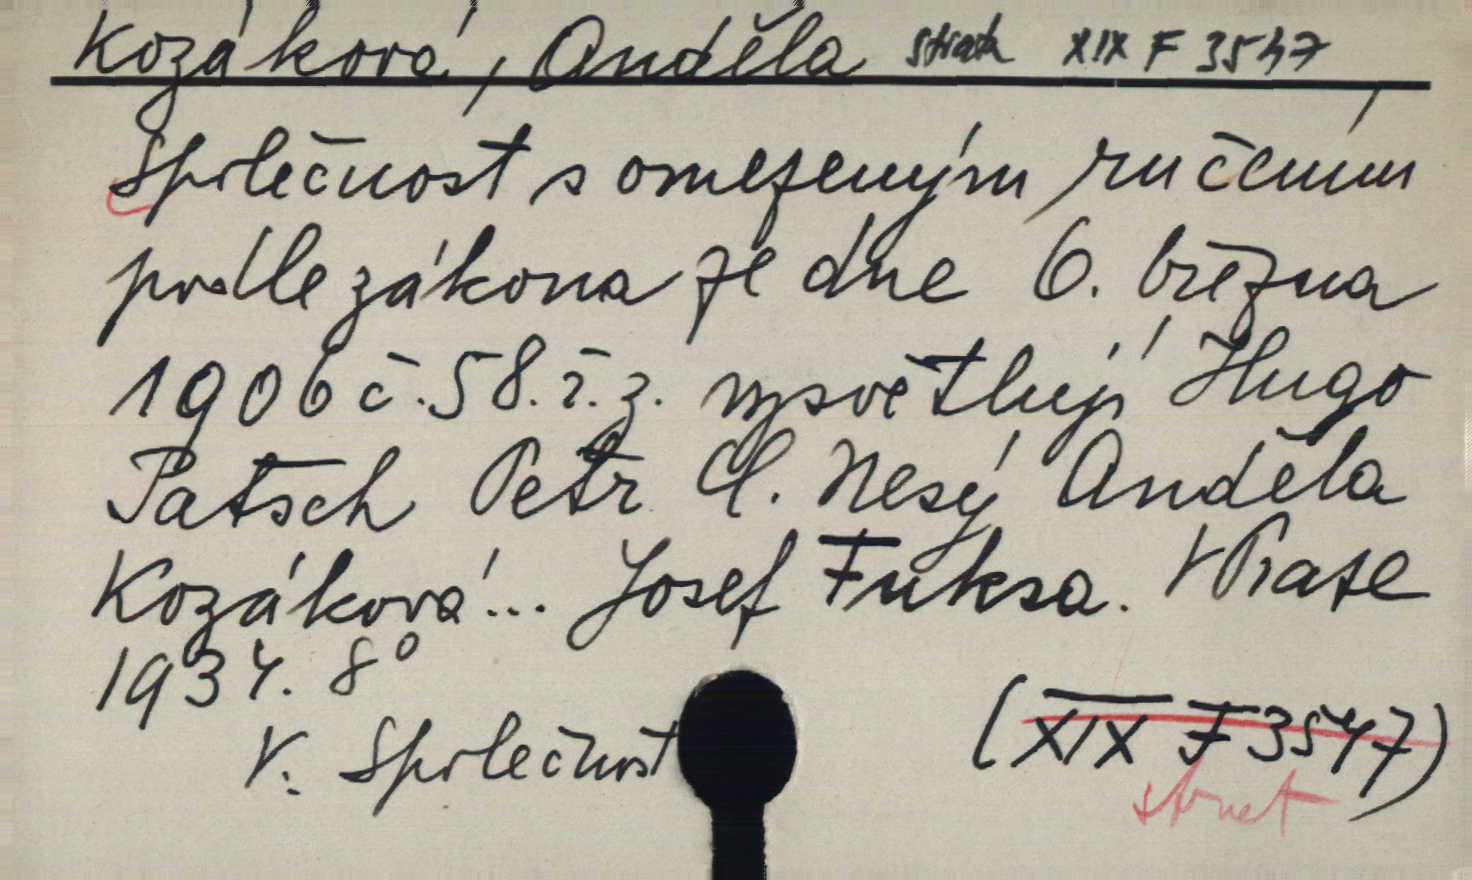 Kozáková, Anděla XIX F 3547
Společnost s omezeným ručením
podle zákona ze dne 6. března
1906 č. 58. ř. z. vysvětlují Hugo
Patsch Petr A. Nesý Anděla
Kozáková... Josef Fuksa. V Praze
1934. 8°
V. Společnost (XIX F 3547)